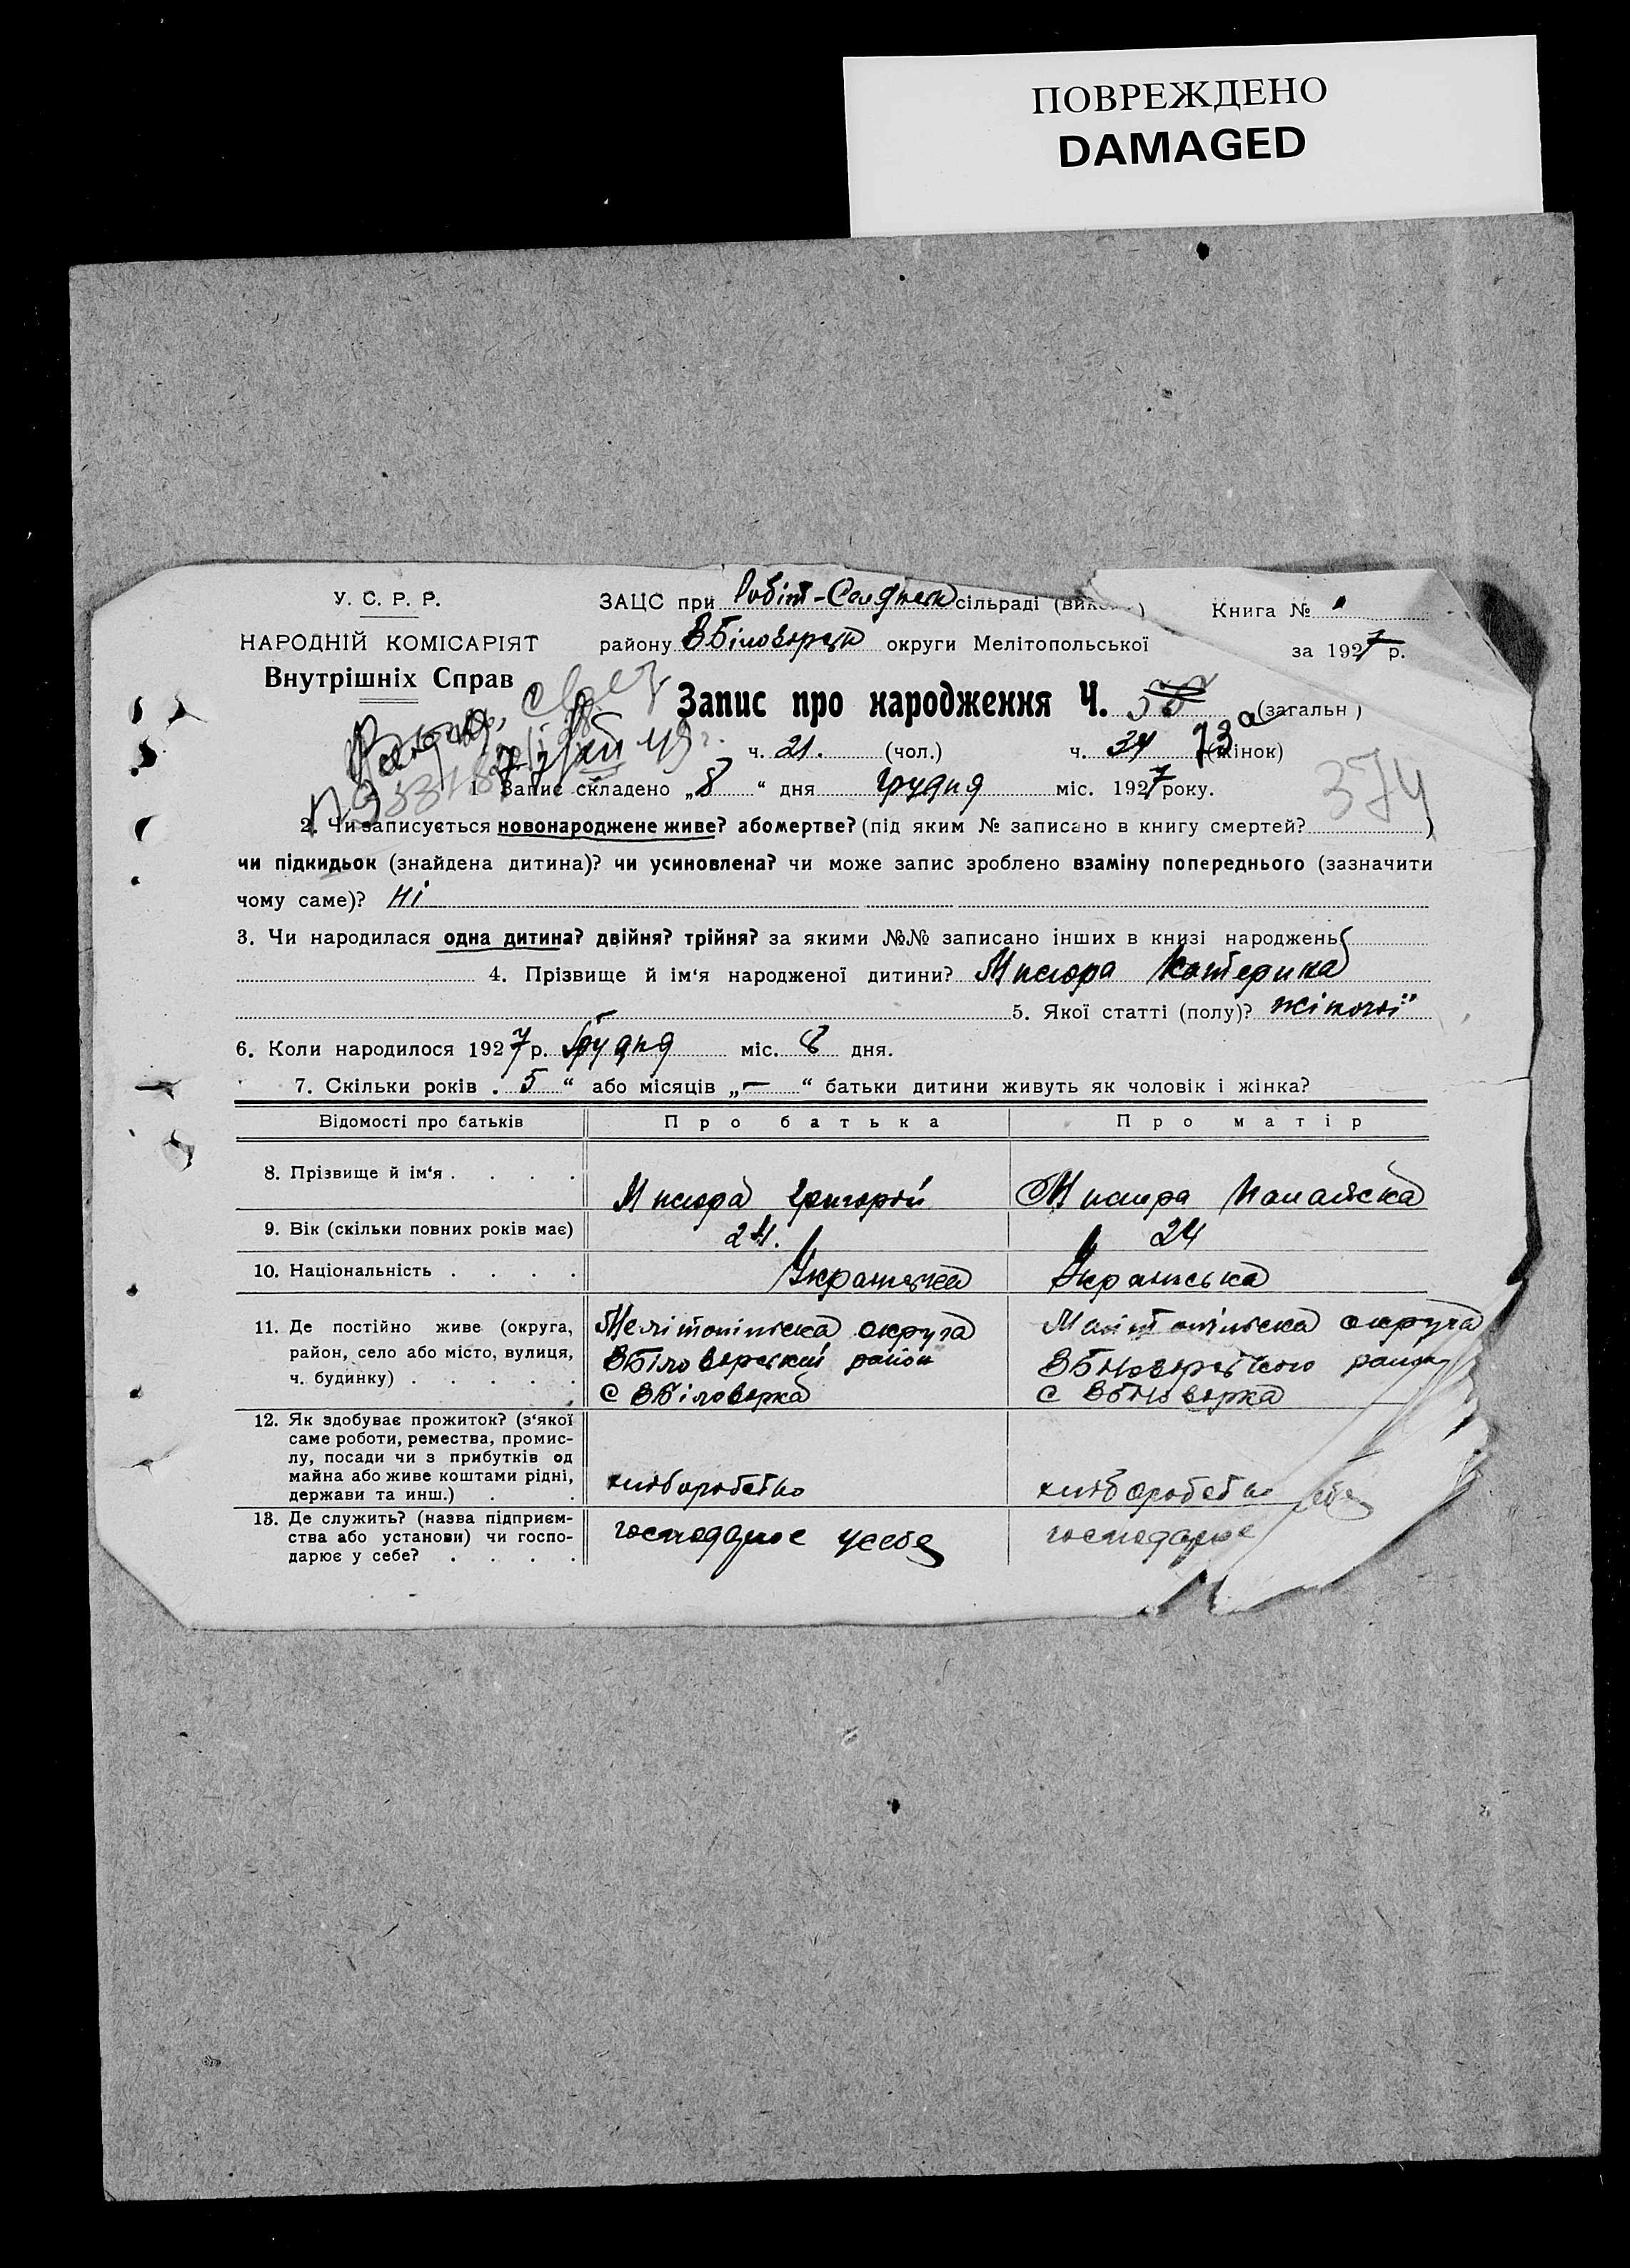 ПОВРЕЖДЕНО
DAMAGED
У. С. Р. Р.
НАРОДНІЙ КОМІСАРІЯТ
Внутрішніх Справ
ЗАЦС при Робіт-Селянськ сільраді
Книга №
району ВБілозерськ округи Мелітопольської
за 1927 р.
Запис про народження Ч. (загальн)
73а
ч. 21. (чол.) ч. 34 (жінок)
374
1 Запис складено „8“ дня грудня міс. 1927 року.
2. Чи записується новонароджене живе? або мертве? (під яким № записано в книгу смертей? )
чи підкидьок (знайдена дитина)? чи усиновлена? чи може запис зроблено взаміну попереднього (зазначити
чому саме)? Ні
3. Чи народилася одна дитина? двійня? трійня? за якими №№ записано інших в книзі народжень
4. Прізвище й ім‘я народженої дитини? Мисюра Катерина
5. Якої статті (полу)? жіночої
6. Коли народилося 1927 р. Грудня міс. 8 дня.
7. Скільки років „5“ або місяців „—“ батьки дитини живуть як чоловік і жінка?
Відомості про батьків Про батька Про матір
8. Прізвище й ім‘я . . . . Мисюра Григорій Мисюра Палажка
9. Вік (скільки повних років має) 24. 24
10. Національність . . . . Українська Українська
11. Де постійно живе (округа,
район, село або місто, вулиця,
ч. будинку) . . . . .
Мелітопільска округа
ВБілозерский район
с ВБілозерка
Мелітопільска округа
ВБілозерського район
с ВБілозерка
12. Як здобуває прожиток? (з‘якої
саме роботи, ремества, промис-
лу, посади чи з прибутків од
майна або живе коштами рідні,
держави та инш.) . .
хліборобство хліборобство
13. Де служить? (назва підприєм-
ства або установи) чи госпо-
дарює у себе? . . . .
господарює у себе господарює